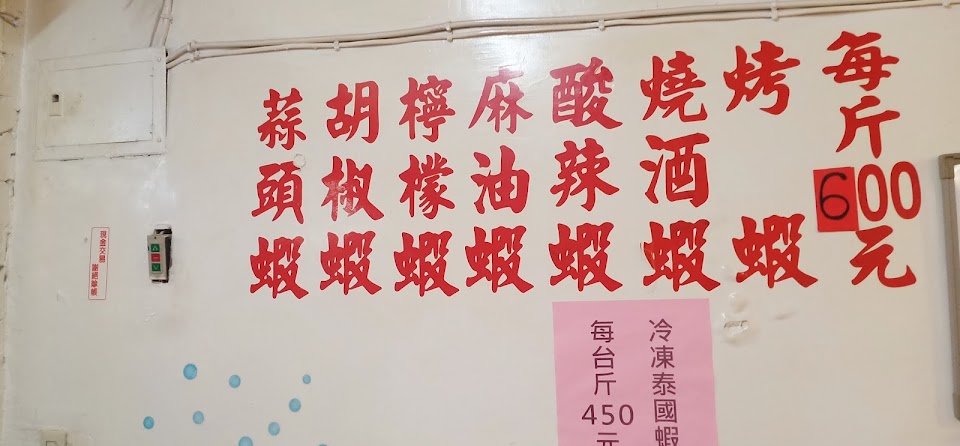 每斤600元
烤蝦
燒酒蝦
酸辣蝦
麻油蝦
檸檬蝦
胡椒蝦
蒜頭蝦
冷凍泰國蝦
每台斤450元
現金交易
謝絕賒帳